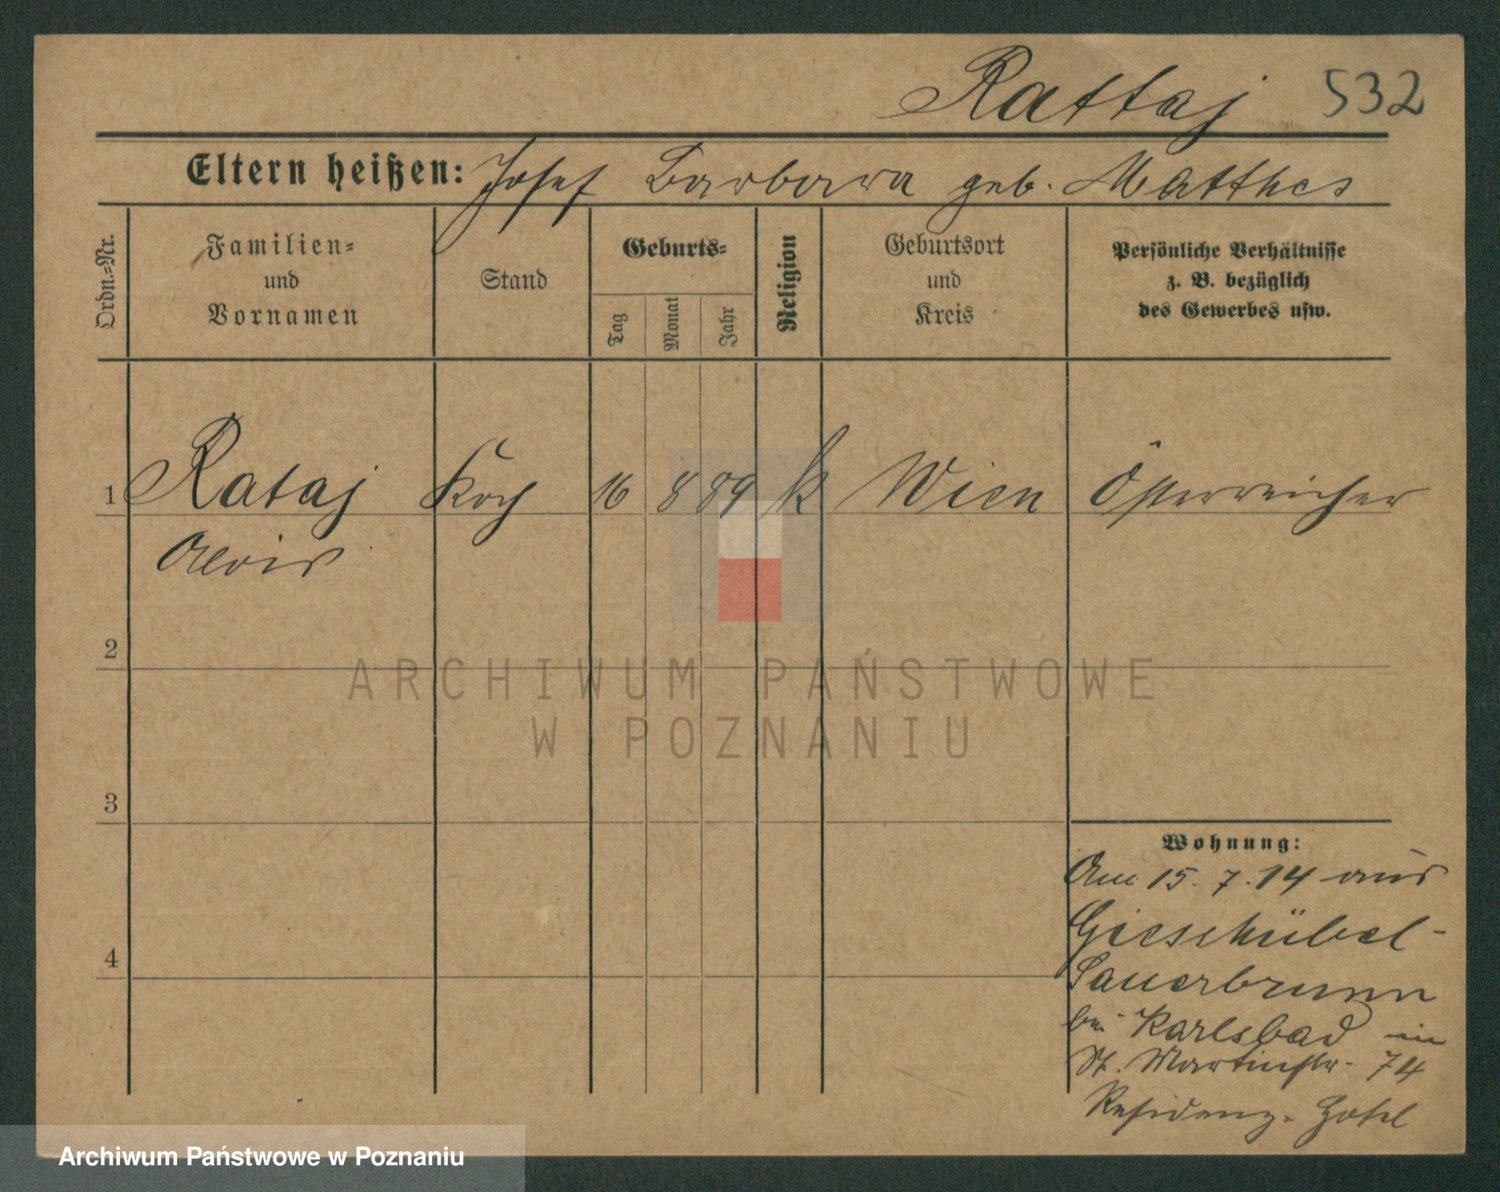 Rattaj 532
Eltern heißen: Josef Barbara geb. Matthes
Ordn.=Nr.
Familien=
und
Vornamen
Stand
Geburts=
Tag
Monat
Jahr
Religion
Geburtsort
und
Kreis
Persönliche Verhältnisse
z. B. bezüglich
des Gewerbes usw.
1 Rataj Koch 16 8 89 k Wien Österreicher
Alois
2
3
4
Wohnung:
Am 15. 7. 14 aus
Giesshübel-
Sauerbrunn
bei Karlsbad in
St. Martinstr. 74
Residenz-Hotel
ARCHIWUM PAŃSTWOWE
W POZNANIU
Archiwum Państwowe w Poznaniu